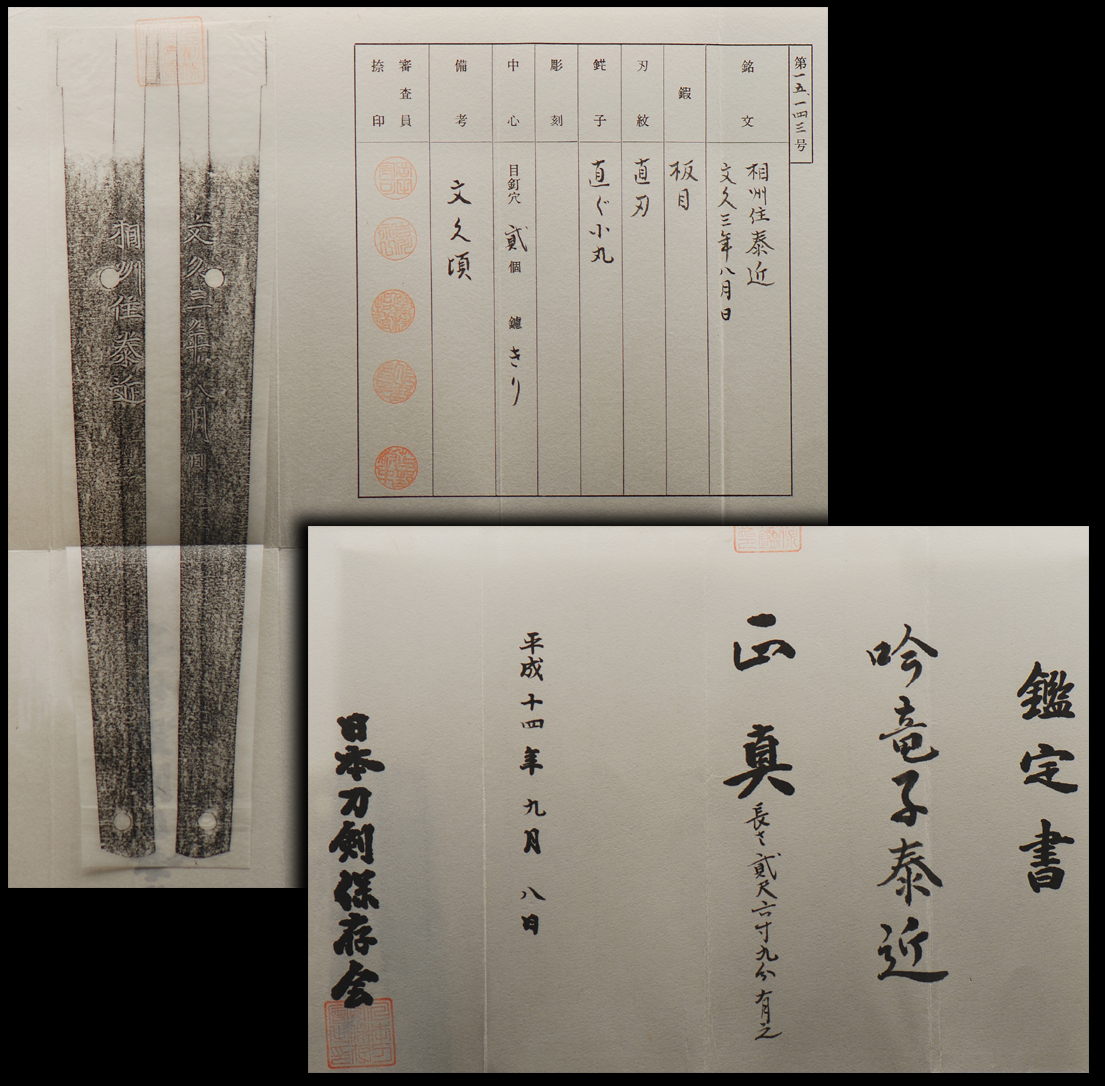 第一五、一四三号
銘文
相州住泰近
文久三年八月日
鍜
板目
刃紋
直刃
鋩子
直ぐ小丸
彫刻
中心
目釘穴 貳個 鑢 きり
備考
文久頃
審査員
捺印
文久三年八月日
相州住泰近
鑑定書
吟竜子泰近
正真
長さ貳尺六寸九分有之
平成十四年九月八日
日本刀剣保存会